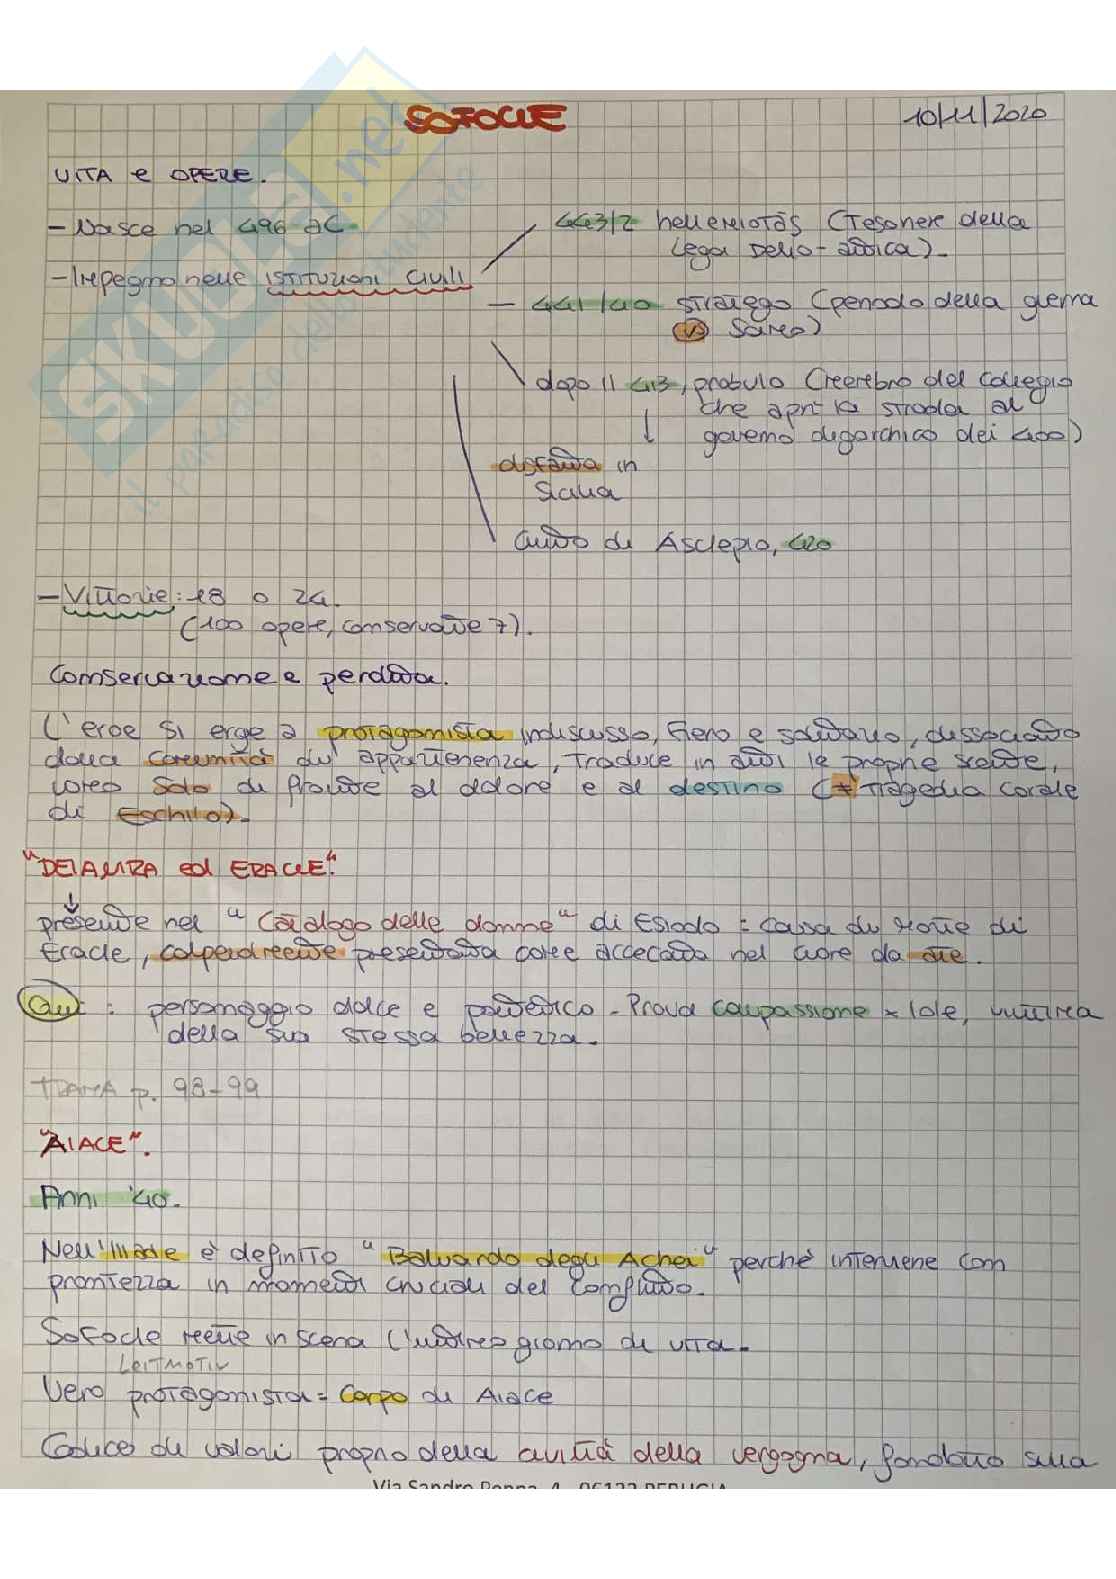 SOFOCLE
10/11/2020
VITA e OPERE.
- Nasce nel 496 aC
443/2 hellenotas (Tesoriere della
Lega Delio-attica).
- Impegno nelle ISTITUZIONI CIVILI
- 441/40 stratego (periodo della guerra
vs Samo)
dopo il 413, probulo (membro del collegio
che aprì la strada al
governo oligarchico dei 400)
disfatta in
Sicilia
Culto di Asclepio, 420
- Vittorie: 18 o 24.
(100 opere, conservate 7).
Conservazione e perdita.
L'eroe si erge a protagonista indiscusso, fiero e solitario, dissociato
dalla comunità di appartenenza, traduce in atti le proprie scelte,
uomo solo di fronte al dolore e al destino (≠ Tragedia corale
di Eschilo).
"DEIANIRA ed ERACLE".
presente nel "Catalogo delle donne" di Esiodo = causa di morte di
Eracle, colpevolmente presentata come accecata nel cuore da ate.
Qui: personaggio dolce e patetico - Prova compassione x Iole, vittima
della sua stessa bellezza.
TRAMA p. 98-99
"AIACE".
Anni '40.
Nell'Iliade è definito "Baluardo degli Achei" perché interviene con
prontezza in momenti cruciali del conflitto.
Sofocle mette in scena l'ultimo giorno di vita.
LEITMOTIV
Vero protagonista = Corpo di Aiace
Codice di valori proprio della civiltà della vergogna, fondato sulla
Via Sandro Penna, 4 - 06132 PERUGIA
SKUOLA.net
il paradiso dello studente